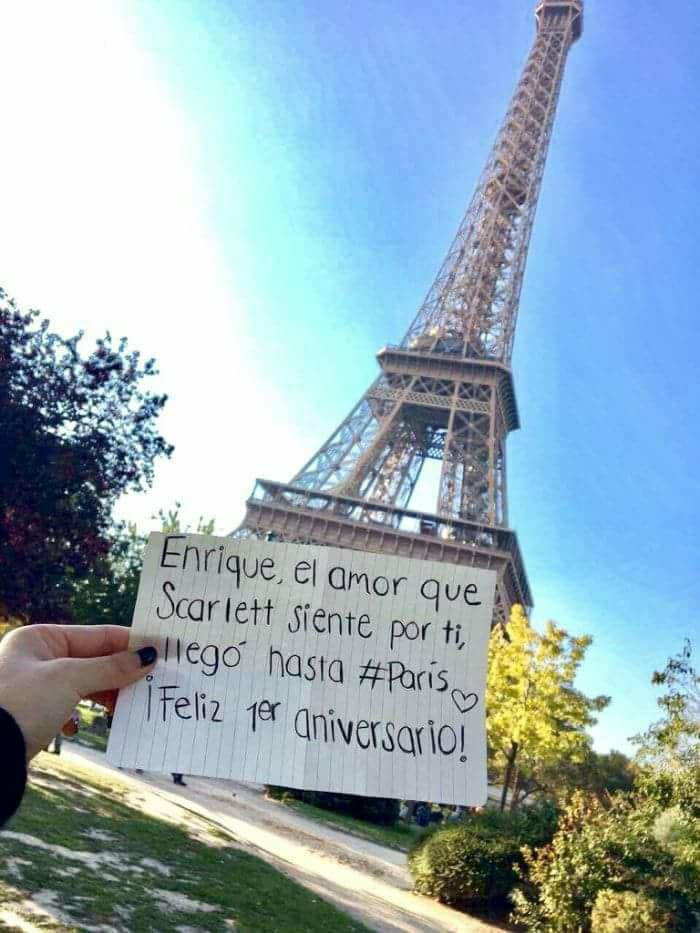 Enrique, el amor que
Scarlett siente por ti,
llegó hasta #París♡
¡Feliz 1er aniversario!